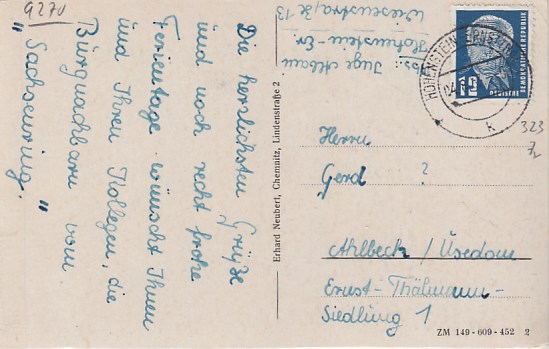 9270
Die herzlichsten Grüße
und noch recht frohe
Ferientage wünscht Ihnen
und Ihren Kollegen, die
Bürgnachbarn vom
"Sachsenring."
Erhard Neubert, Chemnitz, Lindenstraße 2
Abs: Inge Alban
Hohenstein-Er.
Wiesenstraße 13
DEUTSCHE DEMOKRATISCHE REPUBLIK
12
HOHENSTEIN-ERNSTTHAL
k
323
Herrn
Gerd ?
Ahlbeck/Usedom
Ernst-Thälmann-
Siedlung 1
ZM 149-609-452 2